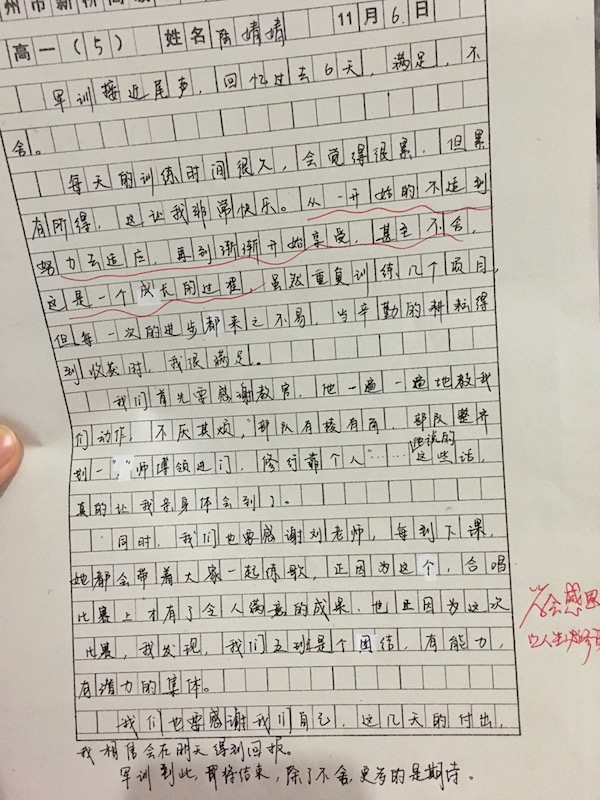 州市新桥高级
高一（5） 姓名 陈婧婧 11月6日
军训接近尾声，回忆过去6天，满足，不
舍。
每天的训练时间很久，会觉得很累，但累
有所得，这让我非常快乐。从一开始的不适到
努力去适应，再到渐渐开始享受，甚至不舍，
这是一个成长的过程，虽然重复训练几个项目，
但每一次的进步都来之不易，当辛勤的耕耘得
到收获时，我很满足。
我们首先要感谢教官，他一遍一遍地教我
们动作，不厌其烦，"部队有棱有角，部队整齐
划一"，"师傅领进门，修行靠个人"……他说的这些话，
真的让我亲身体会到了。
同时，我们也要感谢刘老师，每到下课，
她都会带着大家一起练歌，正因为这个，合唱
比赛上才有了令人满意的成果，也正因为这次
比赛，我发现，我们五班是个团结，有能力，
有潜力的集体。
我们也要感谢我们自己，这几天的付出，
我相信会在明天得到回报。
军训到此，即将结束，除了不舍，更多的是期待。
学会感恩
人生必修